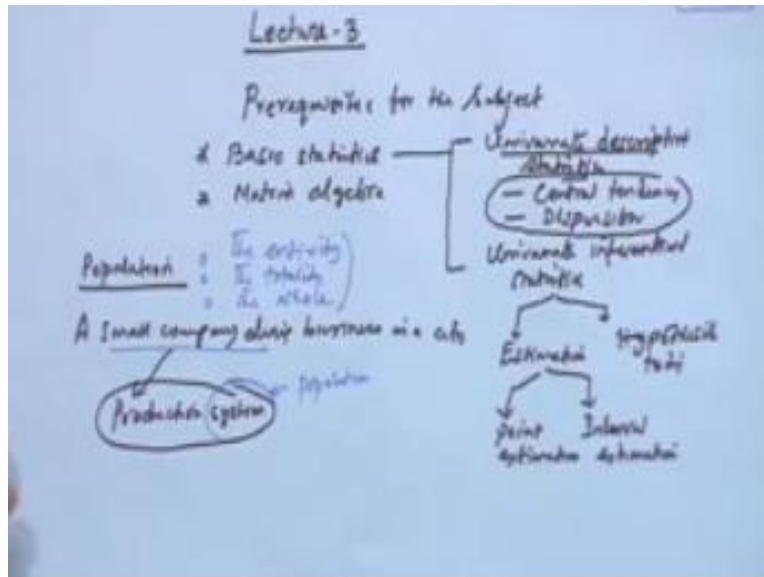 Lecture-3
Prerequisites for the Subject
Basic statistics
Matrix algebra
Univariate descriptive
statistics
- Central tendency
- Dispersion
Univariate inferential
statistics
Estimation
Hypothesis
Point
estimation
Interval
estimation
Population
The entirety
The totality
The whole
A small company doing business in a city
Production system
population